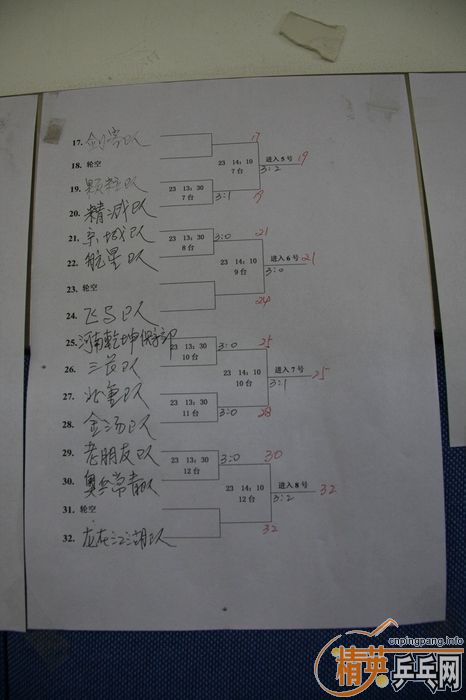 17. 剑客队
17
18. 轮空
23 14：10 进入5号 19
7台 3:2
19. 颗粒队
23 13：30
7台 3:1 19
20. 精诚队
21. 京城队
23 13：30 3:0 21
8台
22. 航星队
23 14：10 进入6号 21
9台 3:0
23. 轮空
24
24. 飞马队
25. 河南乾坤俱乐部
23 13：30 3:0 25
10台
26. 三茂队
23 14：10 进入7号 25
10台 3:1
27.
23 13：30
11台 3:0 28
28. 金汤队
29. 老朋友队
23 13：30 3:0 30
12台
30. 奥华常青队
23 14：10 进入8号 32
12台 3:2
31. 轮空
32
32. 龙在江湖队
cnpingpang.info
精英乒乓网